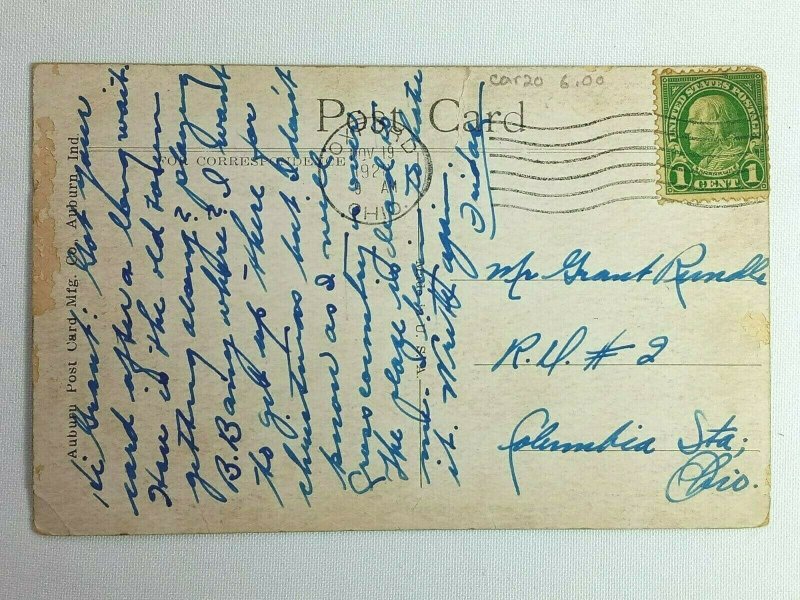 car20 6.00
Post Card
FOR CORRESPONDENCE
Auburn Post Card Mfg. Co., Auburn Ind
OHIO.
9 AM
UNITED STATES POSTAGE
FRANKLIN
1 CENT 1
Mr Grant Rundle
R.D. # 2
Columbia Sta;
Ohio.
Hi Grant: Got your
card after a long wait.
How is the old town
getting along? playing
B.B any where? I want
to get up there for
christmas but don't
know as I will.
Cross country is over.
The place is dead
and I begin to hate
it. Write again